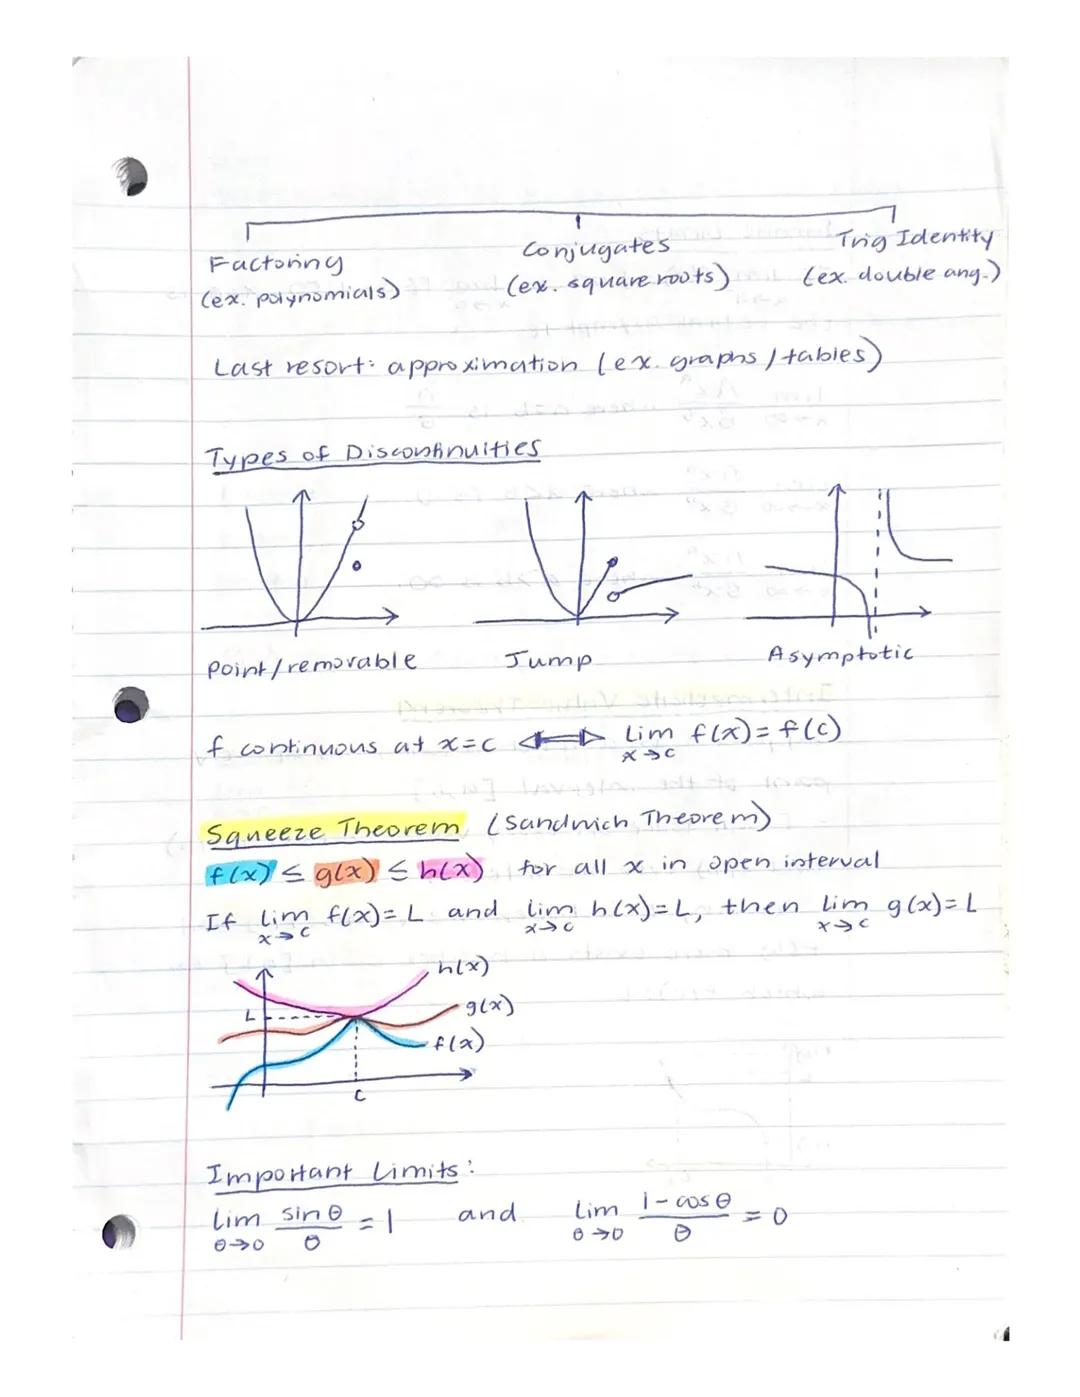 Factoring Conjugates Trig Identity
(ex. polynomials) (ex. square roots) (ex. double ang.)
Last resort: approximation (ex. graphs / tables)
Types of Discontinuities
Point/removable Jump Asymptotic
f continuous at x=c ⟺ lim x→c f(x) = f(c)
Squeeze Theorem (Sandwich Theorem)
f(x) ≤ g(x) ≤ h(x) for all x in open interval
If lim x→c f(x) = L and lim x→c h(x) = L, then lim x→c g(x) = L
h(x)
g(x)
L
f(x)
c
Important Limits:
lim θ→0 sin θ / θ = 1 and lim θ→0 1 - cos θ / θ = 0